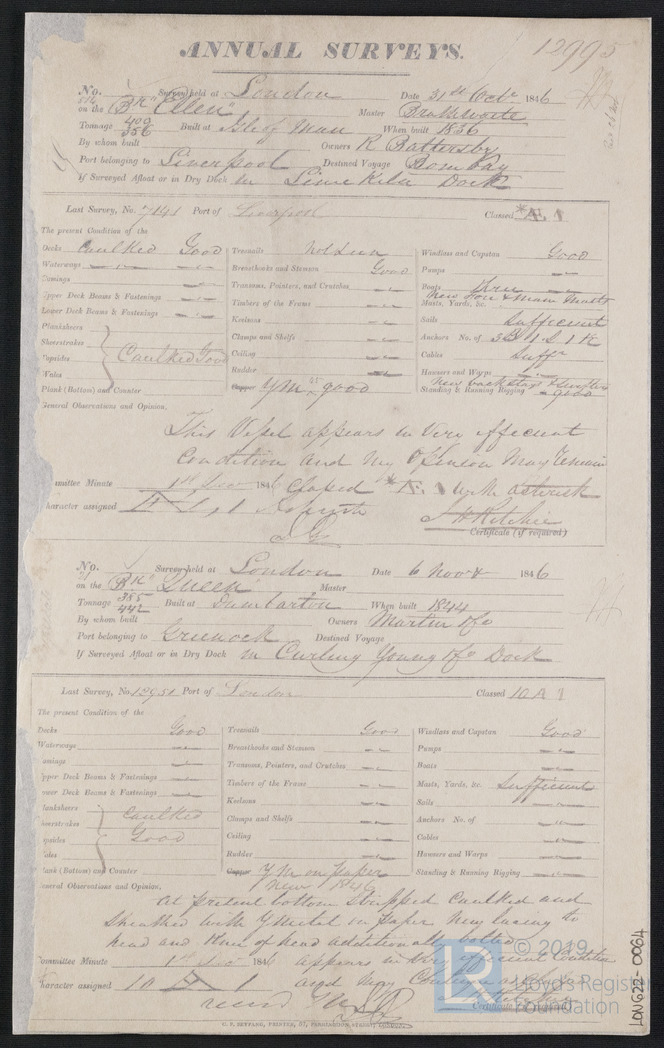 ANNUAL SURVEYS.
12995
No. Survey held at London Date 31st Octr 1846
on the Bk "Ellen" Master
Tonnage 400 356 Built at Isle of Man When built 1836
By whom built Owners R Battersby
Port belonging to Liverpool Destined Voyage Bombay
If Surveyed Afloat or in Dry Dock in Lime Kiln Dock
Last Survey, No. 7141 Port of Liverpool Classed *Æ 1
The present Condition of the
Decks Caulked Good
Waterways
Comings
Upper Deck Beams & Fastenings
Lower Deck Beams & Fastenings
Planksheers
Sheerstrakes
Topsides Caulked Good
Wales
Plank (Bottom) and Counter
Treenails not seen
Breasthooks and Stemson Good
Transoms, Pointers, and Crutches
Timbers of the Frame
Keelsons
Clamps and Shelfs
Ceiling
Rudder
Copper YM 45 good
Windlass and Capstan Good
Pumps
Boats three
New Fore & Main Masts
Masts, Yards, &c.
Sails Sufficient
Anchors No. of 3B 1S 1K
Cables Sufft
Hawsers and Warps
New backstays &
Standing & Running Rigging good
General Observations and Opinion.
This Vessel appears in very efficient
Condition and my Opinion May remain
Committee Minute 1st Decr 1846 Classed *Æ 1 with asterisk
Character assigned
Certificate (if required)
No. Survey held at London Date 6 Novr 1846
on the Bk "Queen" Master
Tonnage 385 442 Built at Dumbarton When built 1844
By whom built Owners Martin & Co
Port belonging to Greenock Destined Voyage
If Surveyed Afloat or in Dry Dock in Curling Young & Co Dock
Last Survey, No. 12951 Port of London Classed 10 A 1
The present Condition of the
Decks Good
Waterways
Comings
Upper Deck Beams & Fastenings
Lower Deck Beams & Fastenings
Planksheers
Sheerstrakes Caulked
Topsides Good
Wales
Plank (Bottom) and Counter
Treenails Good
Breasthooks and Stemson
Transoms, Pointers, and Crutches
Timbers of the Frame
Keelsons
Clamps and Shelfs
Ceiling
Rudder
Copper YM on paper
New 1846
Windlass and Capstan Good
Pumps
Boats
Masts, Yards, &c. Sufficient
Sails
Anchors No. of
Cables
Hawsers and Warps
Standing & Running Rigging
General Observations and Opinion.
At present bottom stripped Caulked and
Sheathed with Y Metal on paper New lacing to
head and Knee of head additionally bolted
Committee Minute 1st Decr 1846 appears in very efficient Condition
Character assigned 10 A 1 and may
Certificate (if required)
C. F. SEYFANG, PRINTER, 57, FENCHURCH STREET, LONDON.
LR
© 2019
Lloyd's Register
Foundation
LON622-0064